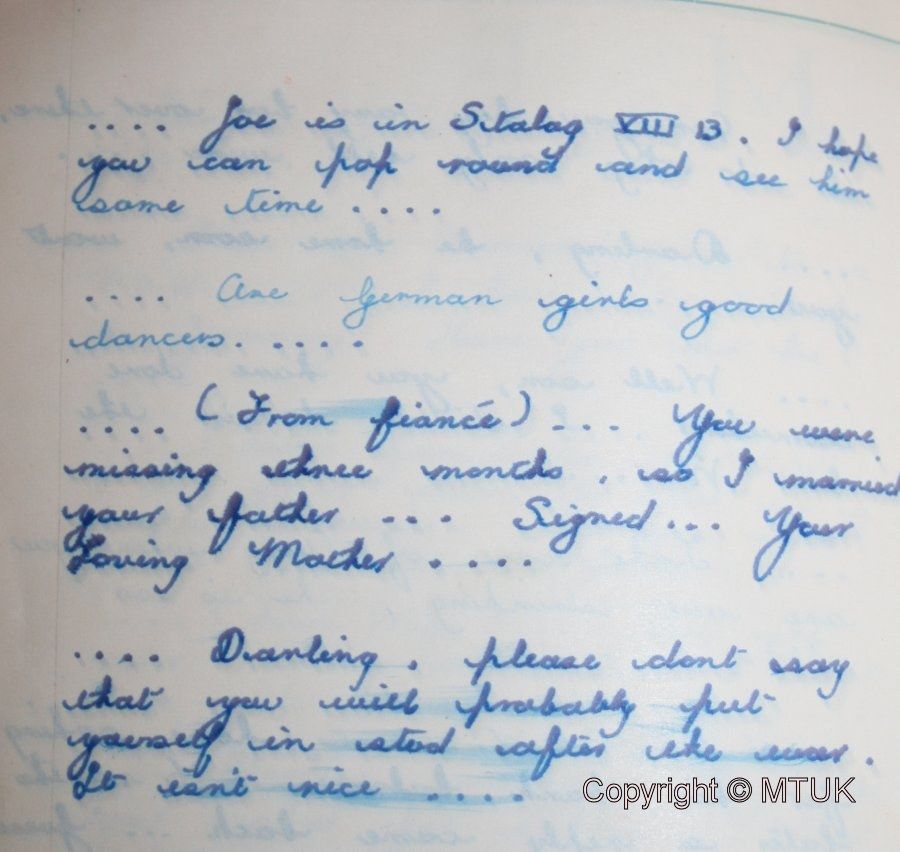 .... Joe is in Stalag VIII B. I hope
you can pop round and see him
some time ....
.... Are German girls good
dancers. ....
.... (From fiancé) ... You were
missing three months, so I married
your father ... Signed ... Your
Loving Mother ....
.... Darling, please dont say
that you will probably put
yourself in stud after the war.
It isn't nice ....
Copyright © MTUK